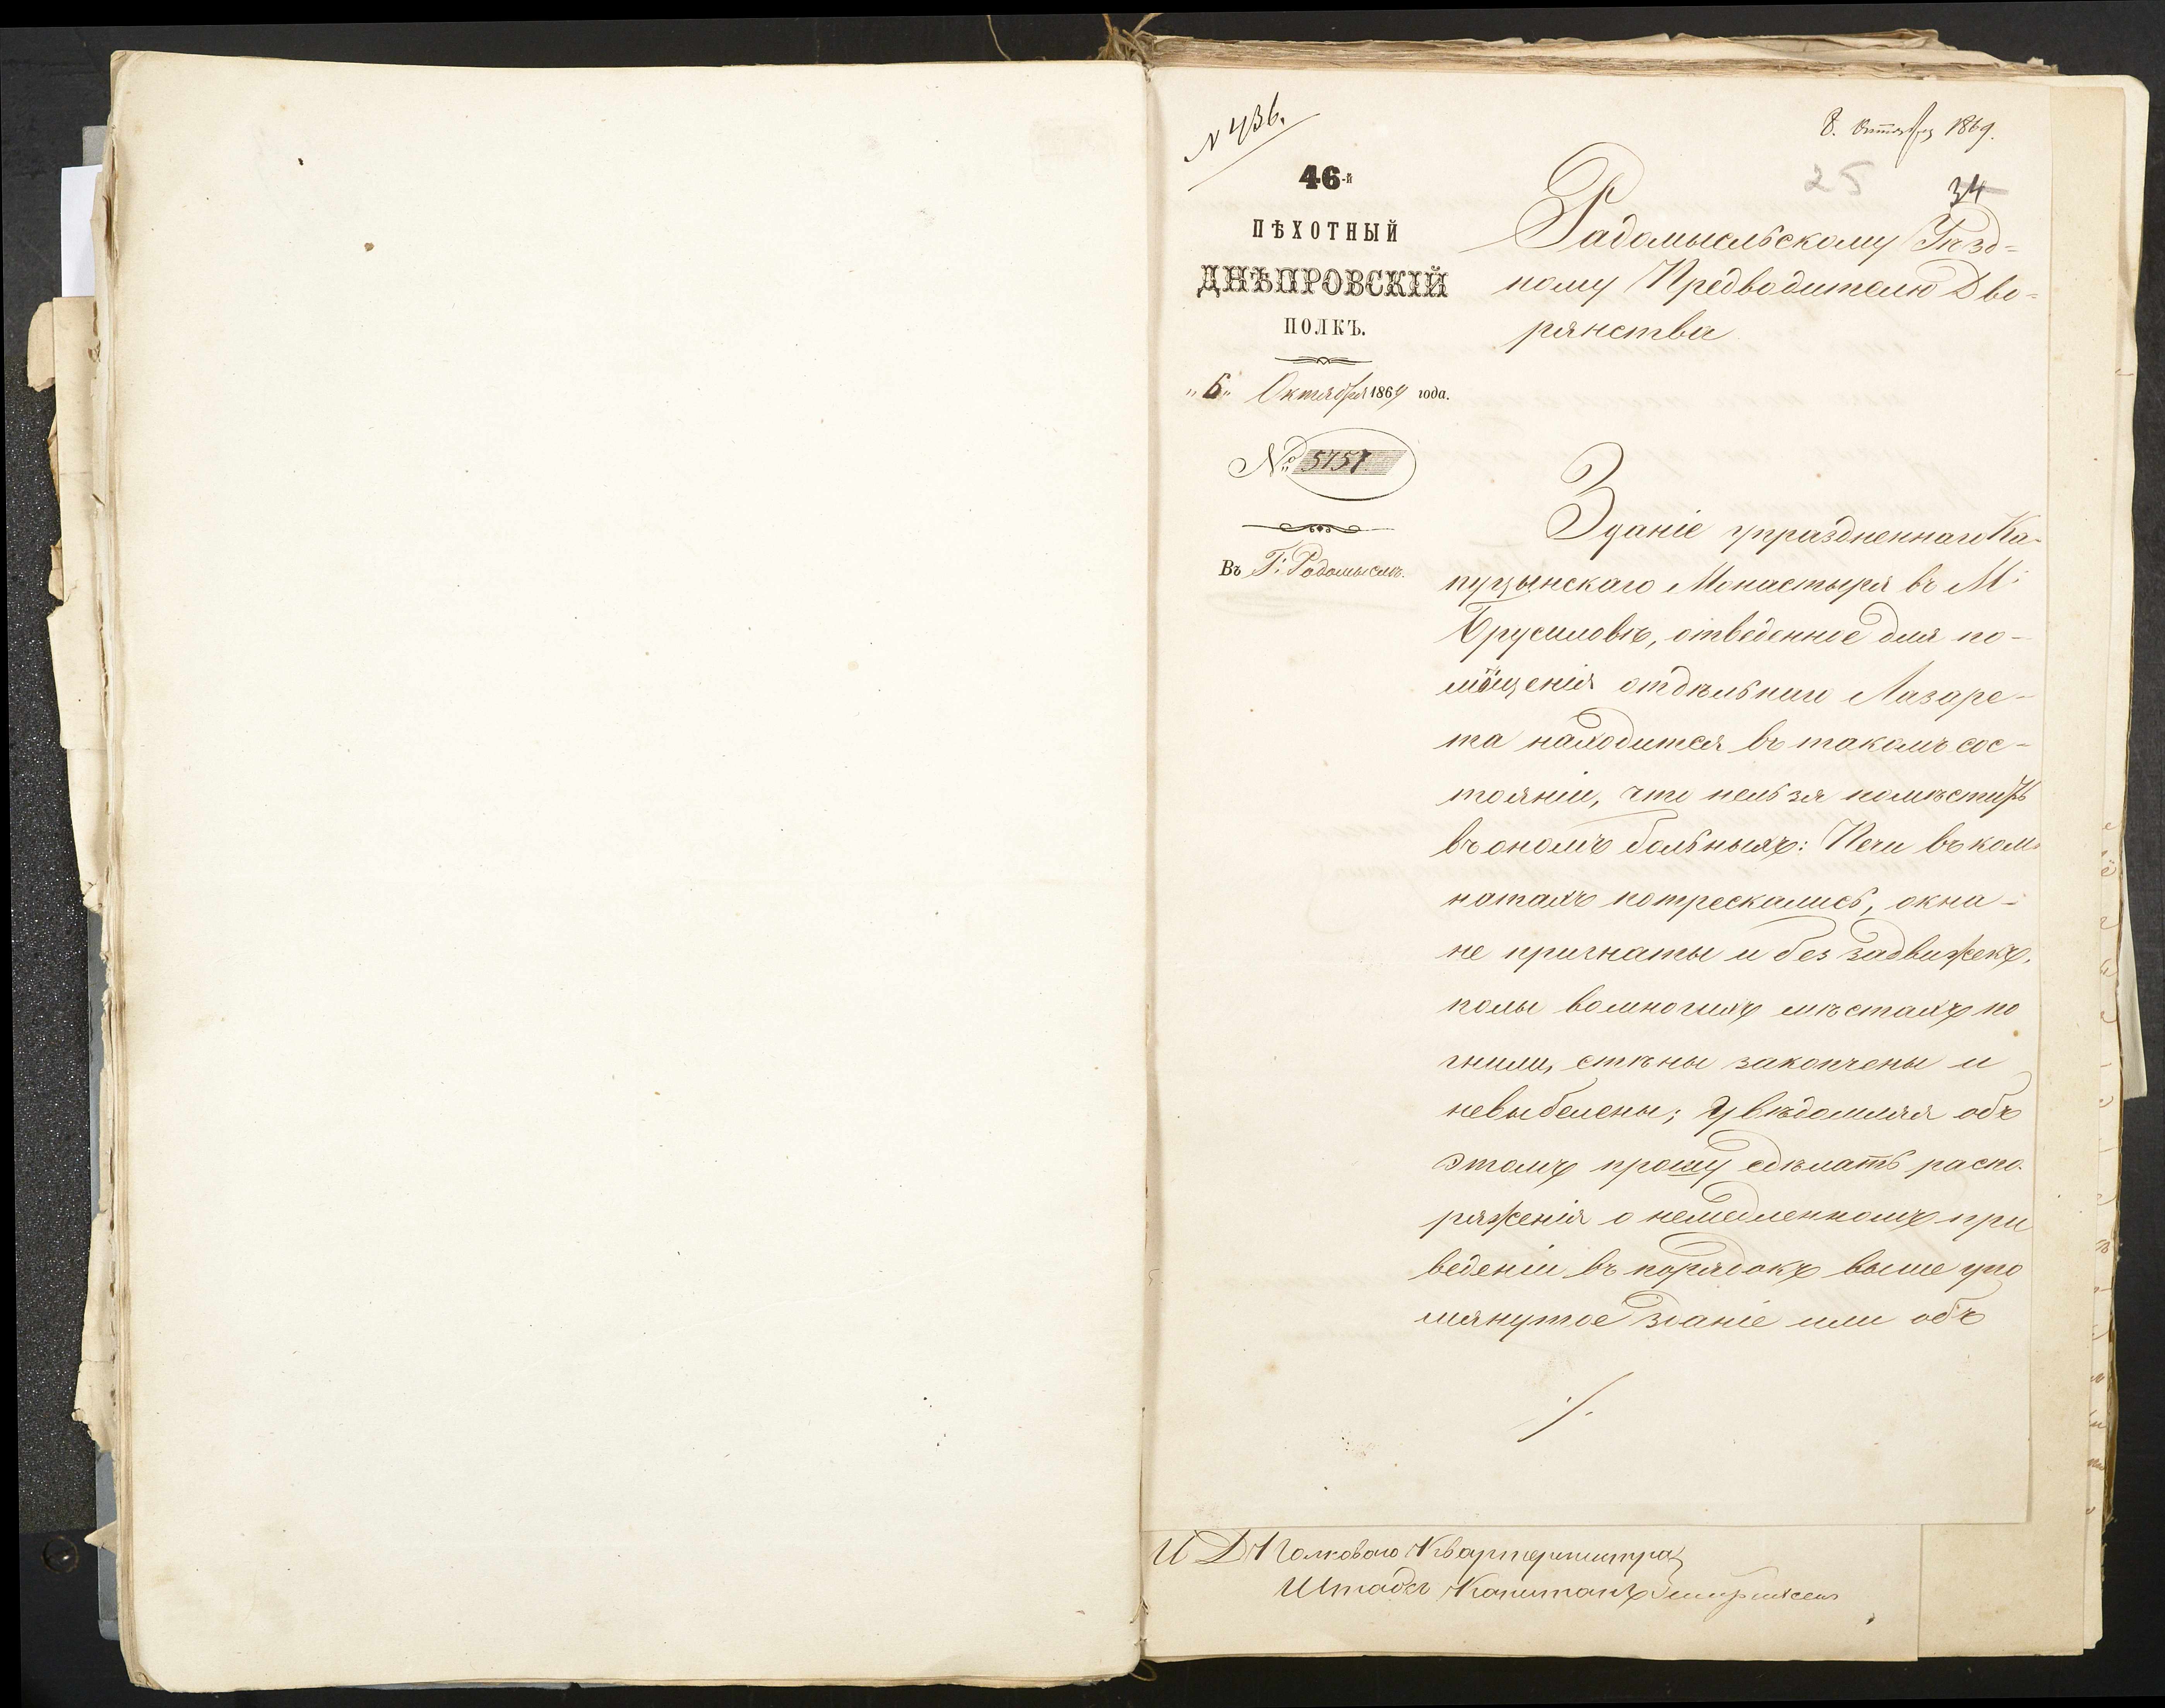 N 436.
8. Октября 1869.
25
34
46-й
ПѢХОТНЫЙ
ДНѢПРОВСКІЙ
ПОЛКЪ.
„6„ Октября 1869 года.
№ 5757
Въ Г: Радомыслѣ.
Радомысльскому Уѣзд=
ному Предводителю Дво=
рянства
Зданіе упраздненнаго Ка-
пуцынскаго Монастыря въ М:
Брусиловѣ, отведенное для по-
мѣщенія отдѣльнаго Лазаре-
та находится въ такомъ сос-
тояніи, что нельзя помѣстить
въ ономъ больныхъ: Печи въ ком-
натахъ потрескались, окна-
не пригнаты и без задвижекъ,
полы вомногихъ мѣстахъ по
гнили, стѣны закопчены и
невыбелены; Увѣдомляя объ
этомъ прошу сдѣлать распо-
ряженія о немедленномъ при
ведении въ порядокъ выше упо
мянутое зданіе или объ
./.
И Д Полковаго Квартермистра
Штабсъ Капитанъ